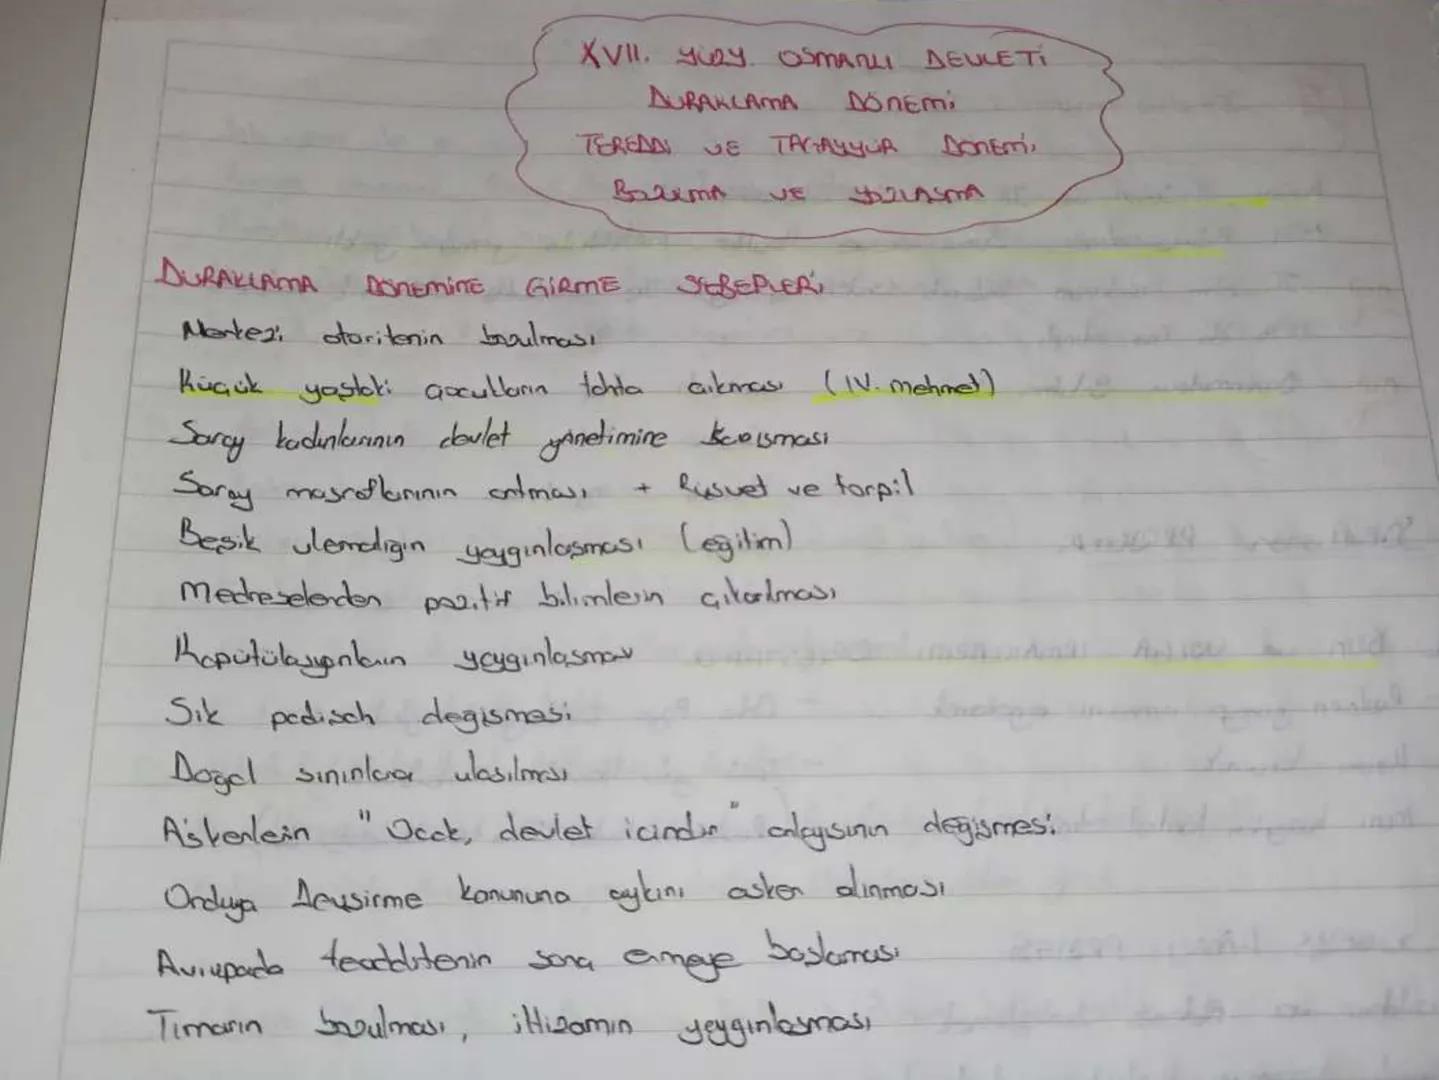 XVII. YÜZY. OSMANLI DEVLETİ
DURAKLAMA DÖNEMİ
TEREDDİ VE TAGAYYUR DÖNEMİ,
BOZULMA VE YOZLAŞMA
DURAKLAMA DÖNEMİNE GİRME SEBEPLERİ
Merkezi otoritenin bozulması
Küçük yaştaki çocukların tahta çıkması (IV. mehmet)
Saray kadınlarının devlet yönetimine karışması
Saray masraflarının artması + Rüşvet ve torpil
Beşik ulemalığın yaygınlaşması (eğitim)
Medreselerden pozitif bilimlerin çıkarılması
Kapütülasyonların yaygınlaşması
Sık padişah değişmesi
Doğal sınırlara ulaşılması
Askerlerin "Ocak, devlet içindir" anlayışının değişmesi
Orduya Devşirme kanununa aykırı asker alınması
Avrupada feodalitenin sona ermeye başlaması
Tımarın bozulması, iltizamın yaygınlaşması